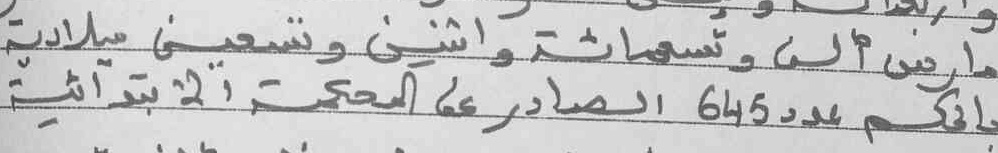 مارس ألف وتسعمائة واثنين وتسعين ميلادية
بالحكم عدد 645 الصادر عن المحكمة الابتدائية